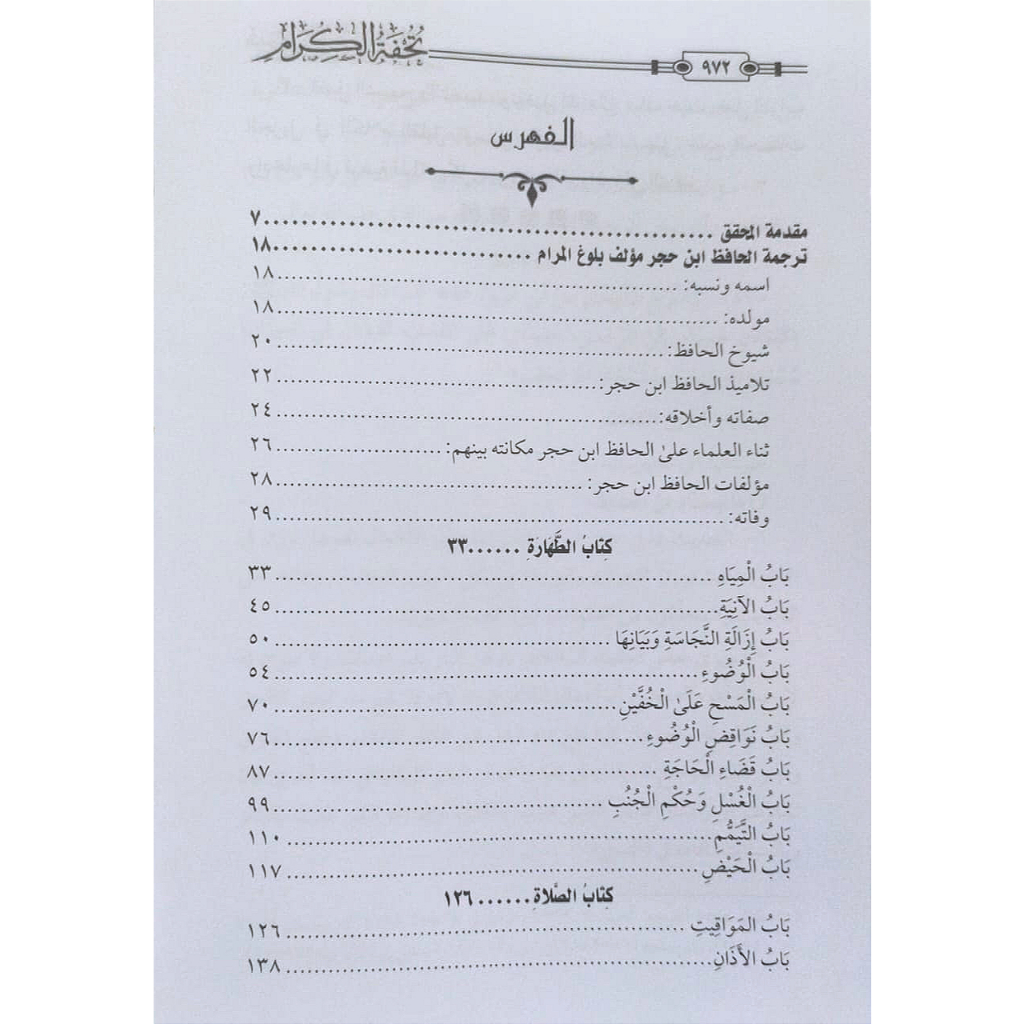 تحفة الكرام ٩٧٢
الفهرس
مقدمة المحقق ............ ٧
ترجمة الحافظ ابن حجر مؤلف بلوغ المرام ............ ١٨
اسمه ونسبه: ............ ١٨
مولده: ............ ١٨
شيوخ الحافظ: ............ ٢٠
تلاميذ الحافظ ابن حجر: ............ ٢٢
صفاته وأخلاقه: ............ ٢٤
ثناء العلماء علىٰ الحافظ ابن حجر مكانته بينهم: ............ ٢٦
مؤلفات الحافظ ابن حجر: ............ ٢٨
وفاته: ............ ٢٩
كِتَابُ الطَّهَارَةِ ...... ٣٣
بَابُ الْمِيَاهِ ............ ٣٣
بَابُ الْآنِيَةِ ............ ٤٥
بَابُ إِزَالَةِ النَّجَاسَةِ وَبَيَانِهَا ............ ٥٠
بَابُ الْوُضُوءِ ............ ٥٤
بَابُ الْمَسْحِ عَلَىٰ الْخُفَّيْنِ ............ ٧٠
بَابُ نَوَاقِضِ الْوُضُوءِ ............ ٧٦
بَابُ قَضَاءِ الْحَاجَةِ ............ ٨٧
بَابُ الْغُسْلِ وَحُكْمِ الْجُنُبِ ............ ٩٩
بَابُ التَّيَمُّمِ ............ ١١٠
بَابُ الْحَيْضِ ............ ١١٧
كِتَابُ الصَّلَاةِ ...... ١٢٦
بَابُ المَوَاقِيتِ ............ ١٢٦
بَابُ الْأَذَانِ ............ ١٣٨